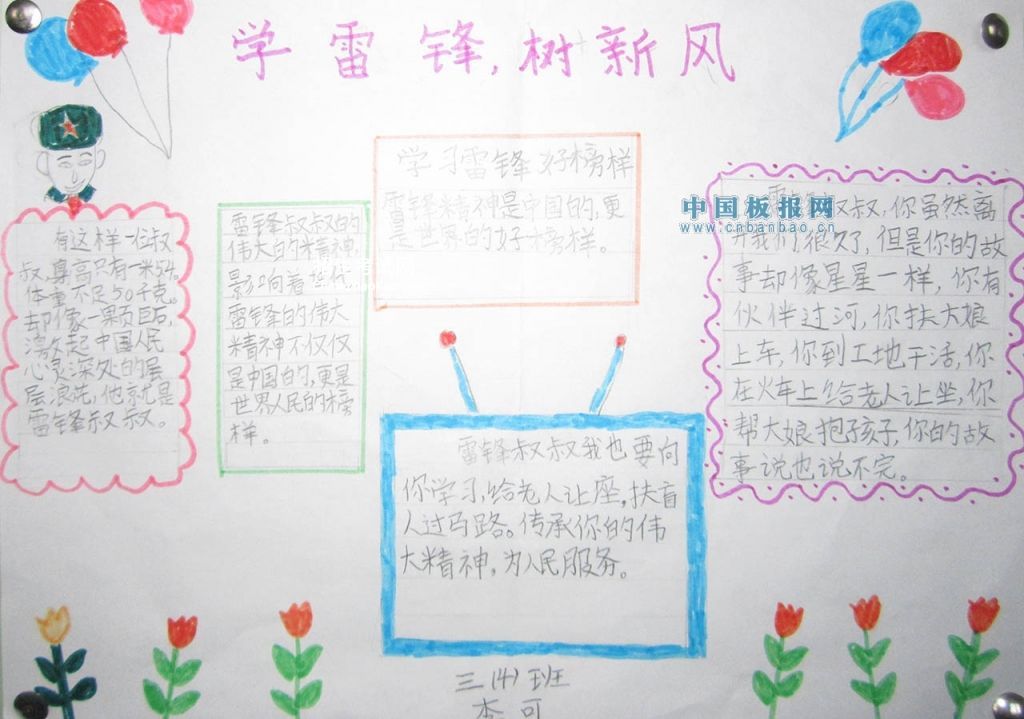 学雷锋,树新风
有这样一位叔
叔,身高只有一米54,
体重不足50千克。
却像一颗巨石,
激起中国人民
心灵深处的层
层浪花,他就是
雷锋叔叔。
雷锋叔叔的
伟大的精神,
影响着些代
雷锋的伟大
精神不仅仅
是中国的,更是
世界人民的榜
样。
学习雷锋好榜样
雷锋精神是中国的,更
是世界的好榜样。
中国板报网
www.cnbanbao.cn
叔,你虽然离
开我们很久了,但是你的故
事却像星星一样,你有
伙伴过河,你扶大娘
上车,你到工地干活,你
在火车上给老人让坐,你
帮大娘抱孩子,你的故
事说也说不完。
雷锋叔叔我也要向
你学习,给老人让座,扶盲
人过马路。传承你的伟
大精神,为人民服务。
三(4)班
李可